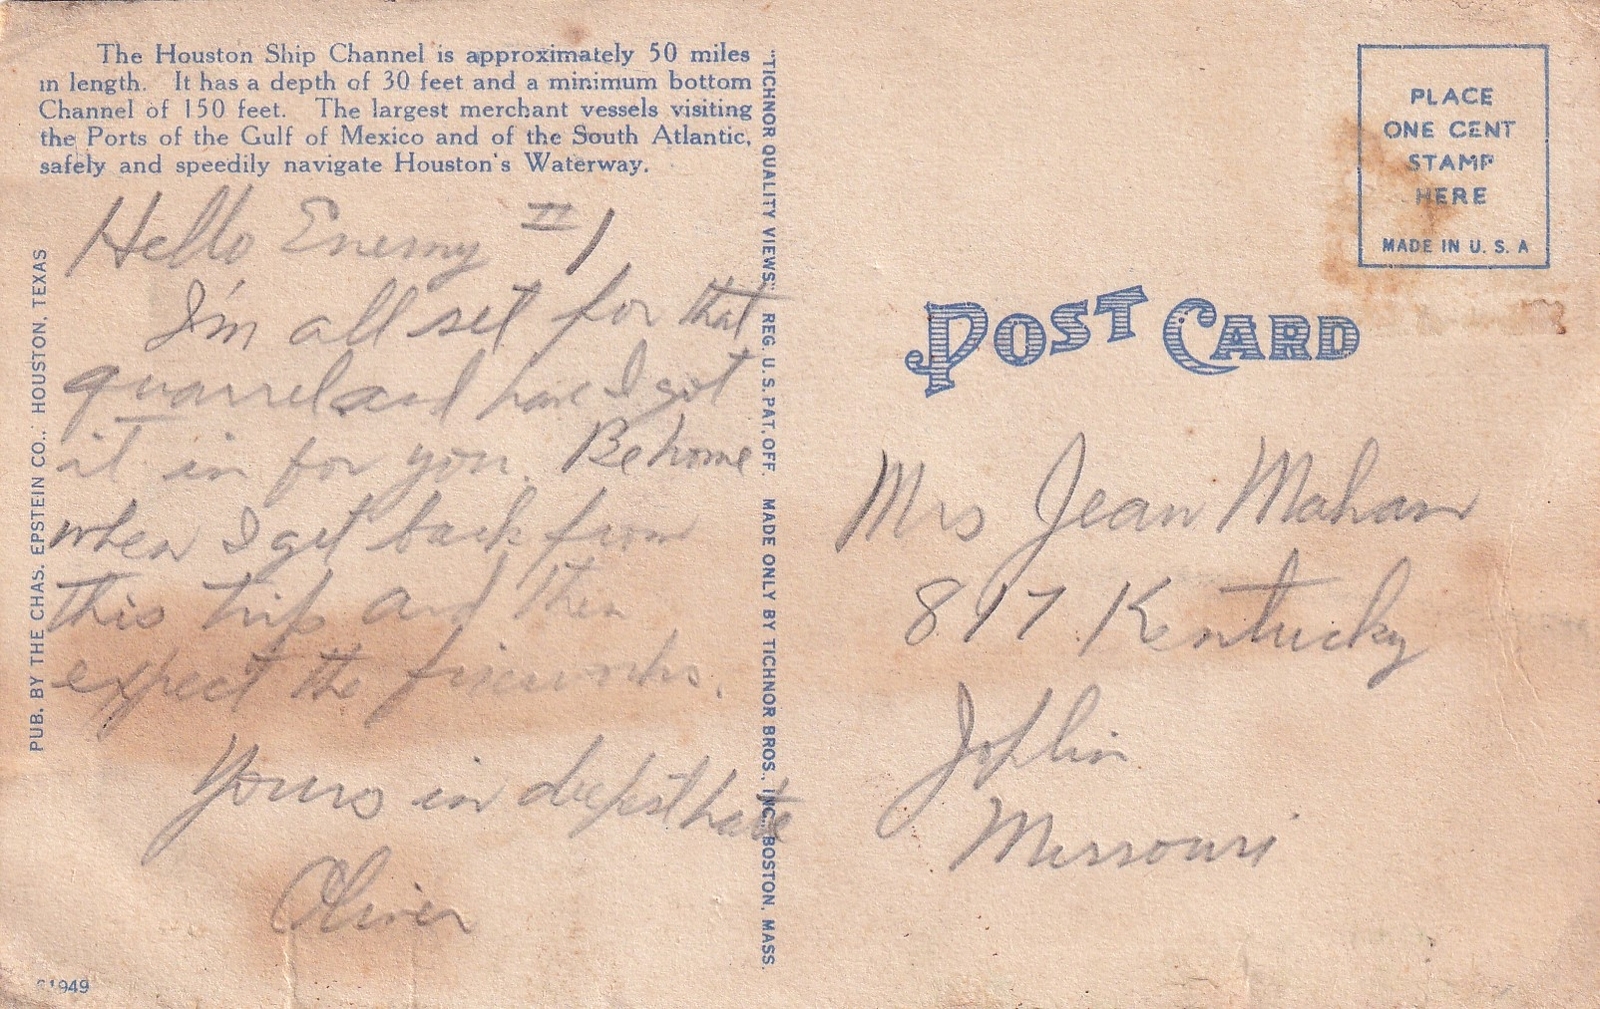 The Houston Ship Channel is approximately 50 miles
in length. It has a depth of 30 feet and a minimum bottom
Channel of 150 feet. The largest merchant vessels visiting
the Ports of the Gulf of Mexico and of the South Atlantic,
safely and speedily navigate Houston's Waterway.
Hello Enemy #1
I'm all set for that
quarrel and have I got
it in for you. Be home
when I get back from
this trip and then
expect the fireworks.
Yours in deepest hate
Oliver
PUB. BY THE CHAS. EPSTEIN CO., HOUSTON, TEXAS
61949
"TICHNOR QUALITY VIEWS" REG. U. S. PAT. OFF. MADE ONLY BY TICHNOR BROS., INC., BOSTON, MASS.
PLACE
ONE CENT
STAMP
HERE
MADE IN U. S. A
POST CARD
Mrs Jean Mahan
817 Kentucky
Joplin
Missouri